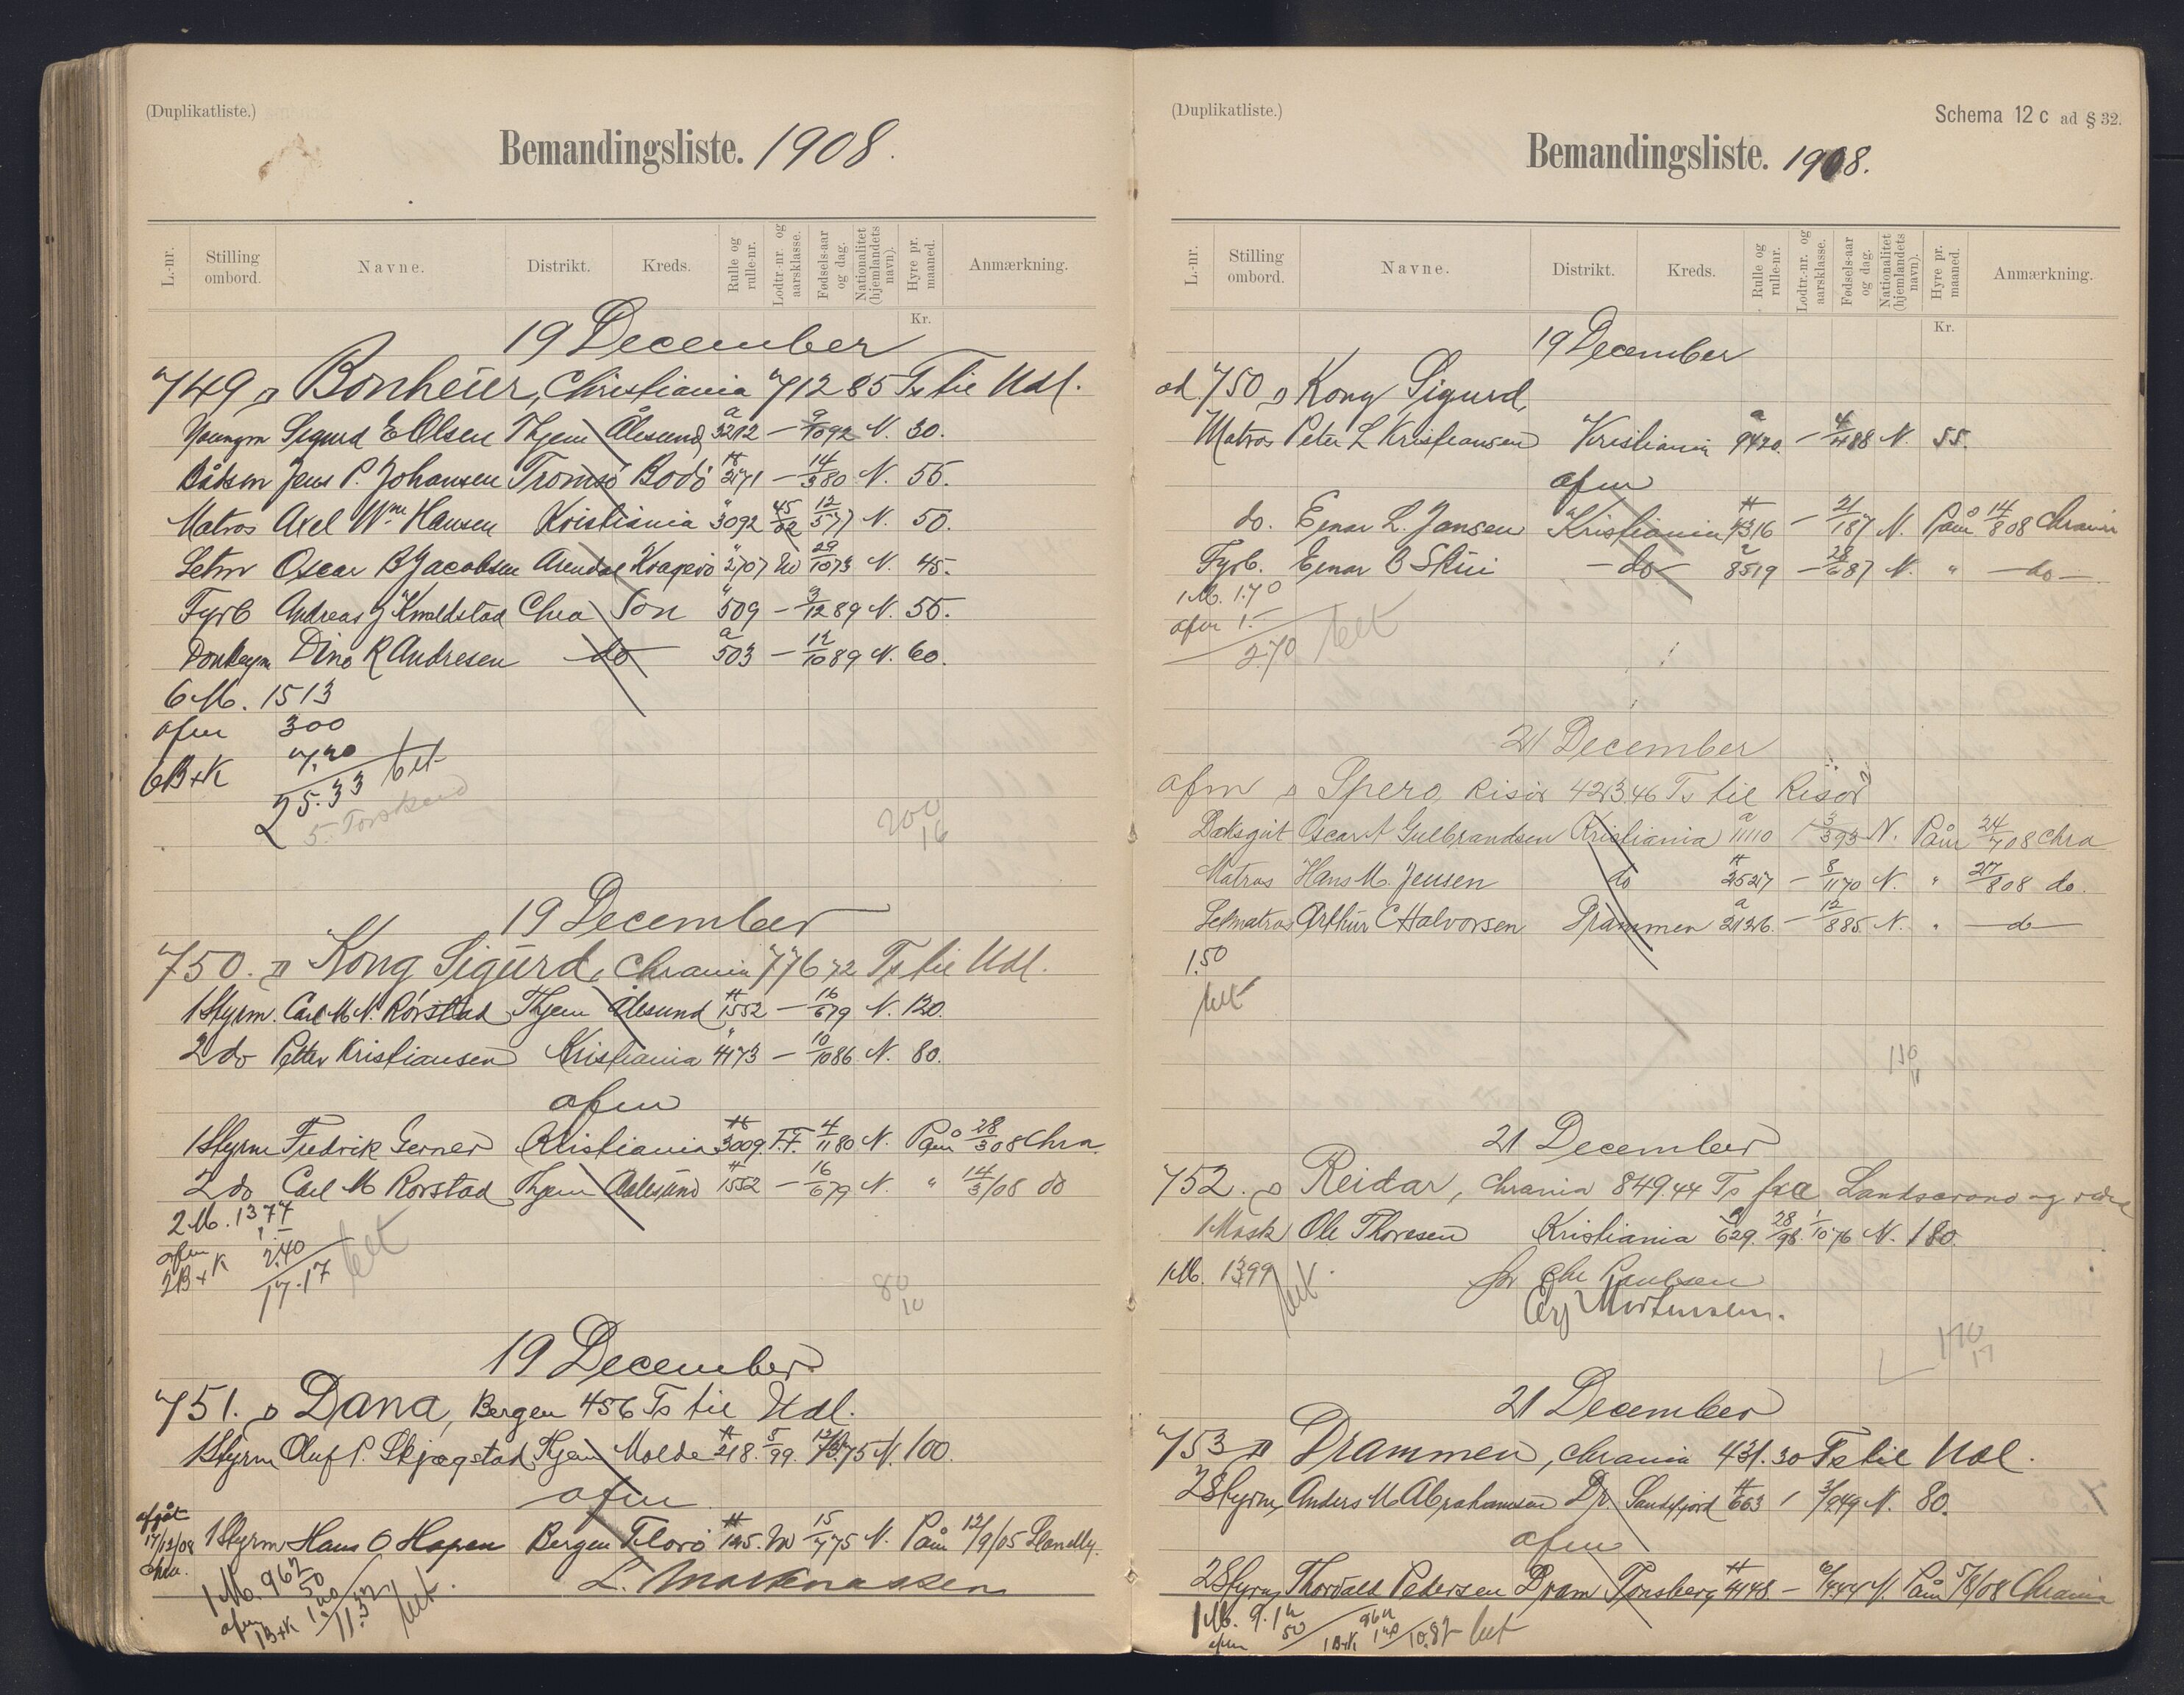 (Duplikatliste.)
Bemandingsliste. 1908.
L.-nr. Stilling ombord. Navne. Distrikt. Kreds. Rulle og rulle-nr. Lodtr.-nr. og aarsklasse. Fødsels-aar og dag. Nationalitet (hjemlandets navn). Hyre pr. maaned. Anmærkning.
Kr.
19 December
749 Bonheur, Christiania 71285 Ts til Udl.
Youngm Sigurd E Olsen Thjem Ålesund a 3212 – 9/10 92 N. 30.
Bådsm Jens P. Johansen Tromsö Bodö 2171 – 14/3 80 N. 55.
Matros Axel Wm Hansen Kristiania 3092 45/02 12/5 77 N. 50.
Letm Oscar B Jacobsen Arendal Kragerö 2707 29/10 73 N. 45.
Fyrb Andreas J Knaldstad Chra Son 509 – 3/12 89 N. 55.
Donkeym Dino R Andresen do a 503 – 12/10 89 N. 60.
6 M. 1513
afm 300
6B+K 7.20
25.33 bet
200
16
19 December
750. Kong Sigurd, Chrania 776,72 Ts til Udl.
1 Styrm. Carl M N. Rörstad Thjem Ålesund 1552 – 16/6 79 N. 120.
2 do Petter Kristiansen Kristiania 4173 – 10/10 86 N. 80.
afm
1 Styrm Fredrik Gerner Kristiania 3009 F.F. 4/11 80 N. Påm 28/3 08 Chra.
2 do Carl M Rorstad Thjem Aalesund 1552 – 16/6 79 N. " 14/3/08 do
2 M. 1377
afm 1.–
2B+K 2.40
17.17 bet
80
10
19 December
751. Dana, Bergen 456 Ts til Udl.
1 Styrm Oluf P. Skjægstad Thjem Molde 218. 5/99. 75 N. 100.
afm
afgåt 17/12/08 Chra. 1 Styrm Hans O Hopen Bergen Florö 125. 15/7 75 N. Påm 12/9/05 Llanelly.
1 M. 962
afm 50
1B+K 1.20
11.32 bet.
(Duplikatliste.) Schema 12 c ad § 32.
Bemandingsliste. 1908.
L.-nr. Stilling ombord. Navne. Distrikt. Kreds. Rulle og rulle-nr. Lodtr.-nr. og aarsklasse. Fødsels-aar og dag. Nationalitet (hjemlandets navn). Hyre pr. maaned. Anmærkning.
Kr.
19 December
ad 750 Kong Sigurd,
Matros Peter L Kristiansen Kristiania a 9420. – 4/4 88 N. 55.
afm
do. Einar L. Jansen Kristiania 4316 – 21/1 87 N. Påm 14/8 08 Chrania
Fyrb. Einar B Skui – do – a 8519 – 28/6 87 N. " – do –.
1 M. 1.70
afm 1.–
2.70 bet
21 December
afm Spero, Risör 423.46 Ts til Risör
Daksgut Oscar A Gulbrandsen Kristiania a 11110 3/3 93 N. Påm 24/7 08 Chra
Matros Hans M. Jensen do 2527 – 8/11 70 N. " 27/8 08 do.
Letmatros Arthur C Halvorsen Drammen a 2126. – 12/8 85 N. " – do –
1.50
bet
110
11
21 December
752. Reidar, Chrania 849.44 Ts fra Landscrona og
1 Mask Ole Thoresen Kristiania 629. 28/98. 1/10 76 N. 180.
1 M. 1399 bet.
170
17
21 December
753 Drammen, Chrania 431.30 Ts til Udl.
2 Styrm, Anders M Abrahamsen Dr. Sandefjord 663 N. 80.
afm
2 Styrm, Thorvald Pedersen Dram Tönsberg 4148. – N. Påm 5/8/08 Chrania
1 M. 9.12
afm 50
1B+K 1.20
10.82 bet